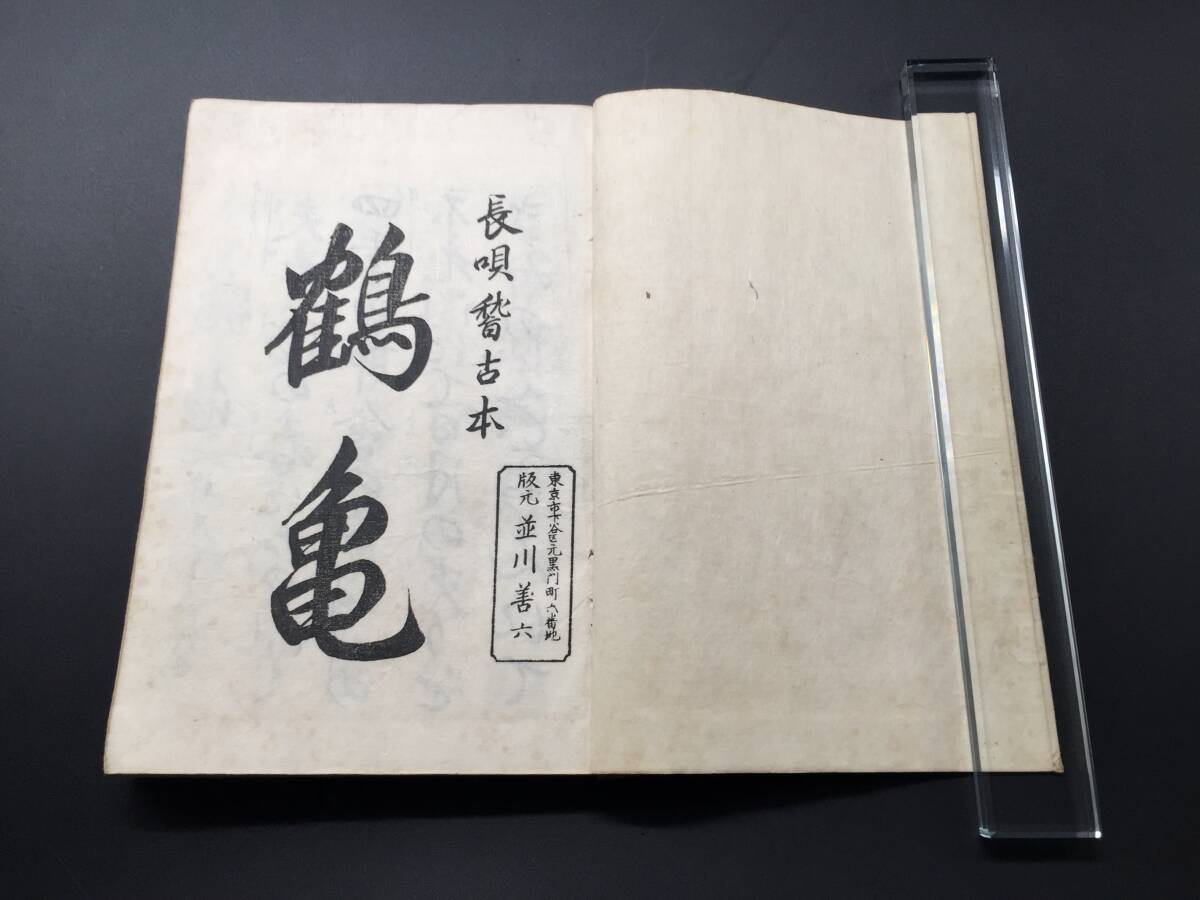 長唄稽古本
鶴亀
東京市下谷区元黒門町六番地
版元 並川善六